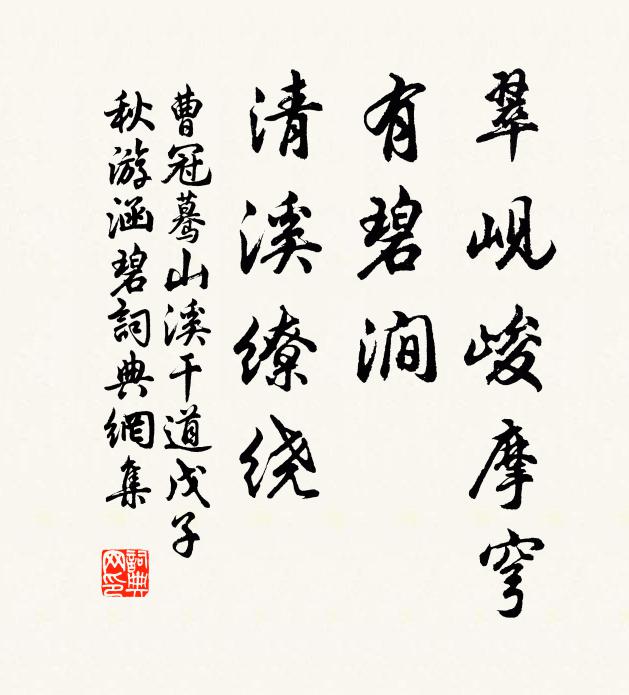 翠岘峻摩穹
有碧涧
清溪缭绕
曹冠蓦山溪干道戊子
秋游涵碧詞典網集
詞典
网印